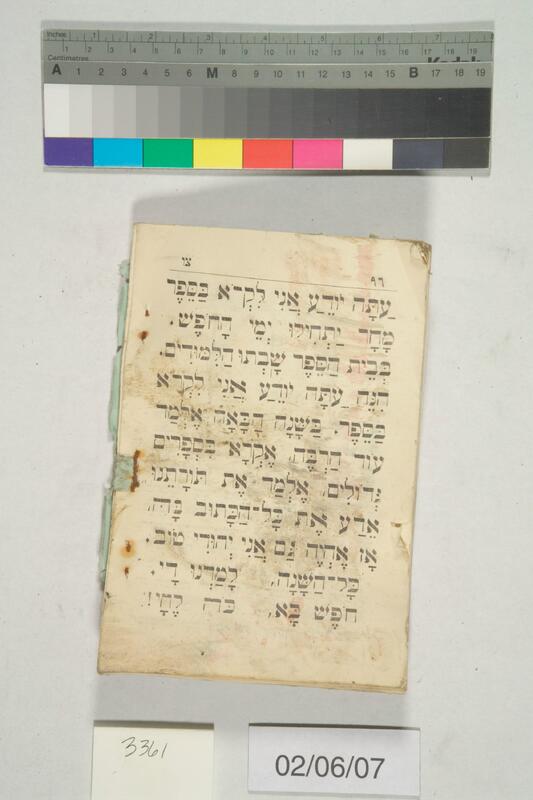 Inches 1 2 3 4 5 6 7
1 2 3 4 5 6 7 8 9 10 11 12 13 14 15 16 17 18 19
Centimetres
A 1 2 3 4 5 6 M 8 9 10 11 12 13 14 15 B 17 18 19
٩٦ צו
עַתָּה יוֹדֵעַ אֲנִי לִקְרֹא בַּסֵּפֶר
מָחָר יַתְחִילוּ יְמֵי הַחֹפֶשׁ.
בְּבֵית הַסֵּפֶר שָׁבְתוּ הַלִּמּוּדִים.
הִנֵּה עַתָּה יוֹדֵעַ אֲנִי לִקְרֹא
בַּסֵּפֶר. בַּשָּׁנָה הַבָּאָה אֶלְמַד
עוֹד הַרְבֵּה. אֶקְרָא בִּסְפָרִים
גְּדוֹלִים. אֶלְמַד אֶת תּוֹרָתֵנוּ
אֵדַע אֶת כָּל־הַכָּתוּב בָּהּ.
אָז אֶהְיֶה גַּם אֲנִי יְהוּדִי טוֹב.
כָּל־הַשָּׁנָה, לָמַדְנוּ דַי.
חֹפֶשׁ בָּא, כֹּה לֶחָי!
3361
02/06/07